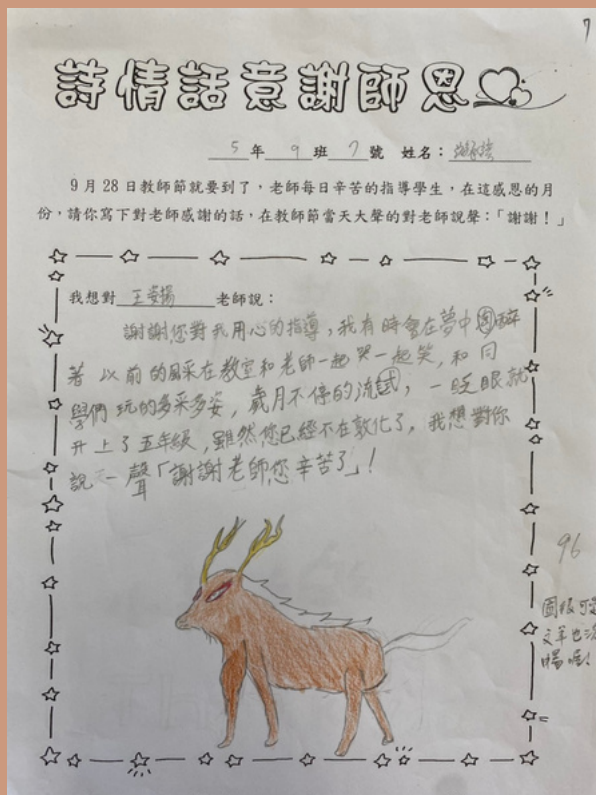 7
詩情話意謝師恩
5年9班7號 姓名：
9月28日教師節就要到了，老師每日辛苦的指導學生，在這感恩的月
份，請你寫下對老師感謝的話，在教師節當天大聲的對老師說聲：「謝謝！」
我想對王姿揚老師說：
謝謝您對我用心的指導，我有時會在夢中陶醉
著以前的風采在教室和老師一起哭一起笑，和同
學們玩的多采多姿，歲月不停的流試，一眨眼就
升上了五年級，雖然您已經不在敦化了，我想對你
說一聲「謝謝老師您辛苦了」！
96
圖很可
文筆也
暢喔！